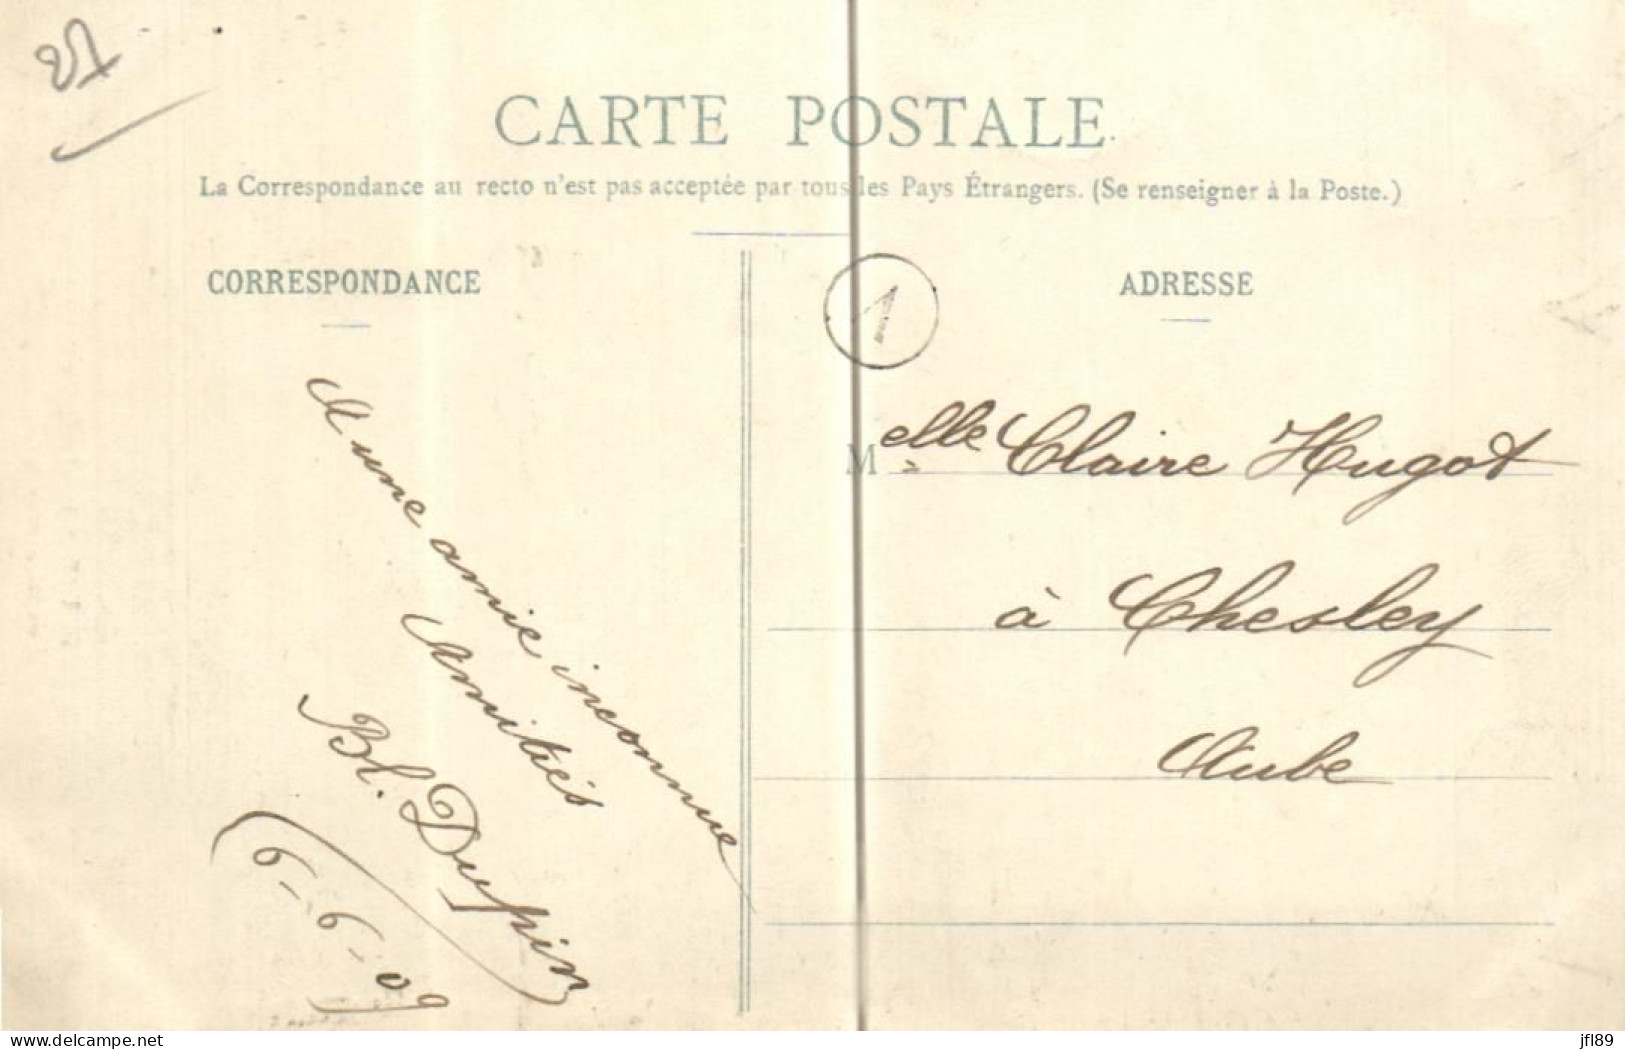 27
CARTE POSTALE
La Correspondance au recto n'est pas acceptée par tous les Pays Étrangers. (Se renseigner à la Poste.)
CORRESPONDANCE
ADRESSE
1
A une amie inconnue
Amitiés
Bl. Dupin
6-6-09
Melle Claire Hugot
à Chesley
Aube
www.delcampe.net
jfl89